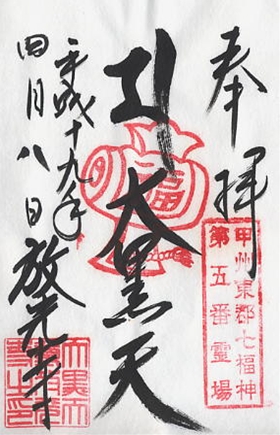 奉拝
甲州東郡七福神
第五番霊場
大黒天
福
平成十九年
四月八日
放光寺